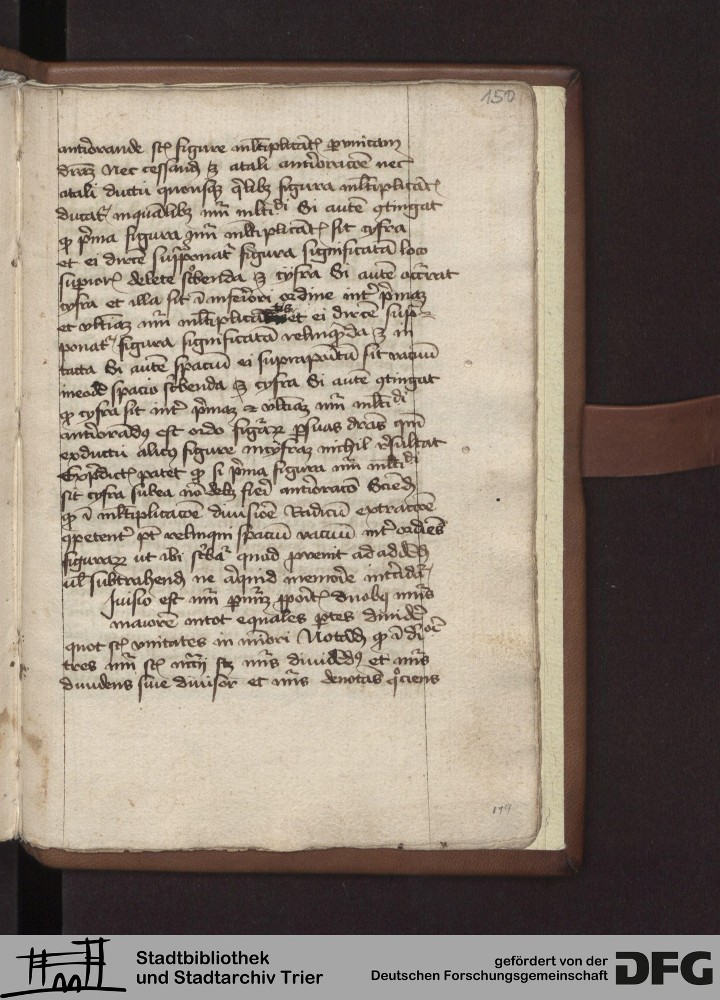 150
anteriorande sunt figure multiplicantis per unicam
driam Nec cessandum est a tali anterioracione nec
a tali ductu quousque quelibet figura multiplicantis
ducatur in quamlibet numeri multiplicandi Si autem contingat
quod prima figura numeri multiplicantis sit cyfra
et ei directe supraponatur figura significativa loco
superioris delete scribenda est cyfra Si autem occurrat
cyfra et illa sit in inferiori ordine inter primam
et ultimam numeri multiplicantis et ei directe supra
ponatur figura significativa relinquenda est in
tacta Si autem spacium ei suprapositum sit vacuum
in eodem spacio scribenda est cyfra Si autem contingat
quod cyfra sit inter primam et ultimam numeri multiplicandi
anteriorandus est ordo figurarum per suas drias quoniam
ex ductu alicuius figure in cyfram nichil resultat
Ex predictis patet quod si prima figura numeri multiplicandi
sit cyfra sub ea non debet fieri anterioracio Sciendum
quod in multiplicacione divisione radicum extractione
competenter potest relinqui spacium vacuum inter ordines
figurarum ut ibi scribatur quod provenit ad addendum
vel subtrahendum ne aliquid memorie intercidatur
ivisio est numeri propositis duobus numeris
maiorem in tot equales partes dividere
quot sunt unitates in minori Notandum quod in
tres numeri sunt scilicet numerus dividendus et numerus
dividens sive divisor et numerus denotans quociens
179
Stadtbibliothek
und Stadtarchiv Trier
gefördert von der
Deutschen Forschungsgemeinschaft
DFG